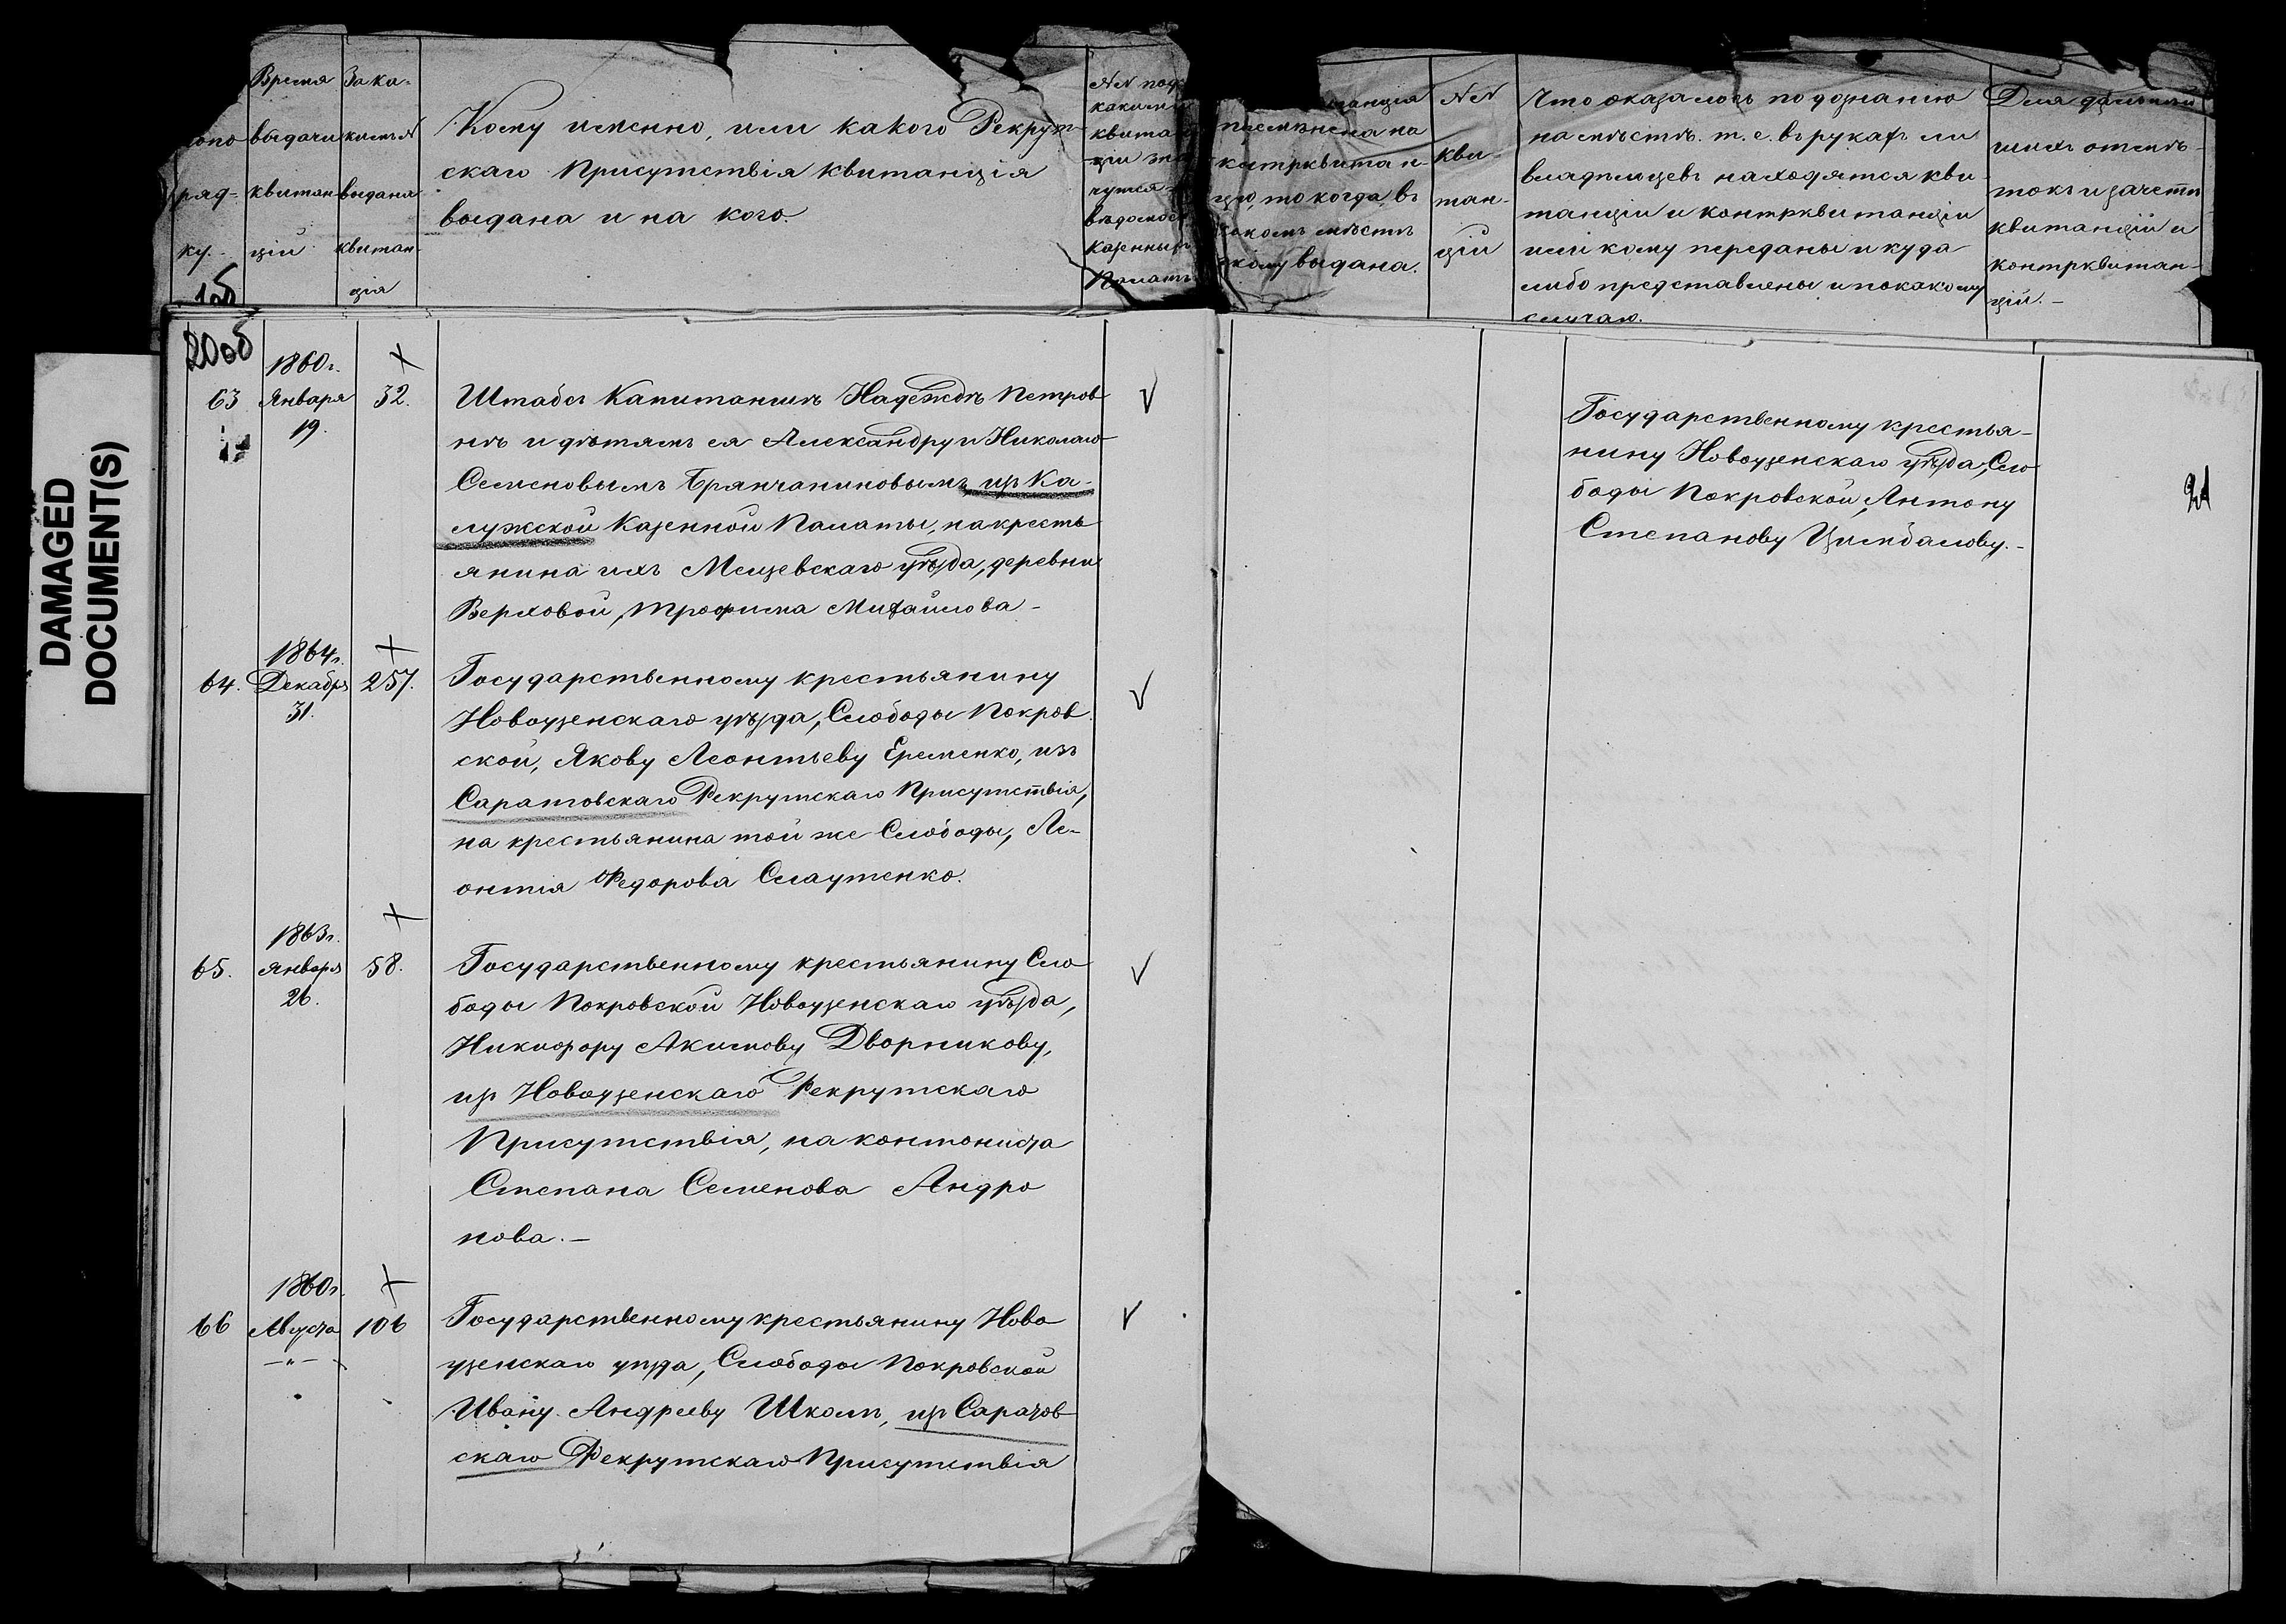 Время
выдачи
квитан
ций
За ка-
кимъ №
выдана
квитан-
ція
ряд-
ку.
1об
Кому именно, или какого Рекрут-
скаго Присутствія квитанція
выдана и на кого
№№ под
какими
квита
ціи
ведомос
Казенных
Палатъ
на
контрквитан
цію, то когда, въ
какомъ мѣстѣ
и кому выдана.
№№
кви-
тан-
цій
Что оказалось по дознанію
на мѣстѣ. т. е. въ рукахъ ли
владѣльцевъ находятся кви-
танціи и контрквитанціи
или кому переданы и куда
либо представлены и по какому
случаю.
Для дальнѣй
шихъ отмѣ-
токъ и зачетѣ
квитанцій и
контрквитан-
цій. -
20об
1860г.
63 Января 32.
19.
Штабсъ Капитаншѣ Надеждѣ Петров-
нѣ и дѣтямъ ея Александру и Николаю
Семеновымъ Брянчаниновымъ, изъ Ка-
лужской Казенной Палаты, на кресть
янина ихъ Мещевскаго уѣзда, деревни
Верховой, Трофима Михайлова -
Государственному крестья-
нину Новоузенскаго уѣзда, Сло
боды Покровской, Антону
Степанову Цимбалову. -
21
1864г.
64. Декабря 257.
31.
Государственному крестьянину
Новоузенскаго уѣзда, Слободы Покров
ской, Якову Леонтьеву Еременко, изъ
Саратовскаго Рекрутскаго Присутствія,
на крестьянина той же Слободы, Ле-
онтія Федорова Слаутенко.
1863г.
65. Января 58.
26.
Государственному крестьянину Сло
боды Покровской Новоузенскаго уѣзда,
Никифору Акимову Дворникову,
изъ Новоузенскаго Рекрутскаго
Присутствія, на кантониста
Степана Семенова Андро
нова. -
1860г.
66 Августа 106
- " -
Государственному крестьянину Ново
узенскаго уѣзда, Слободы Покровской
Ивану Андрееву Школѣ, изъ Саратов
скаго Рекрутскаго Присутствія
DAMAGED
DOCUMENT(S)